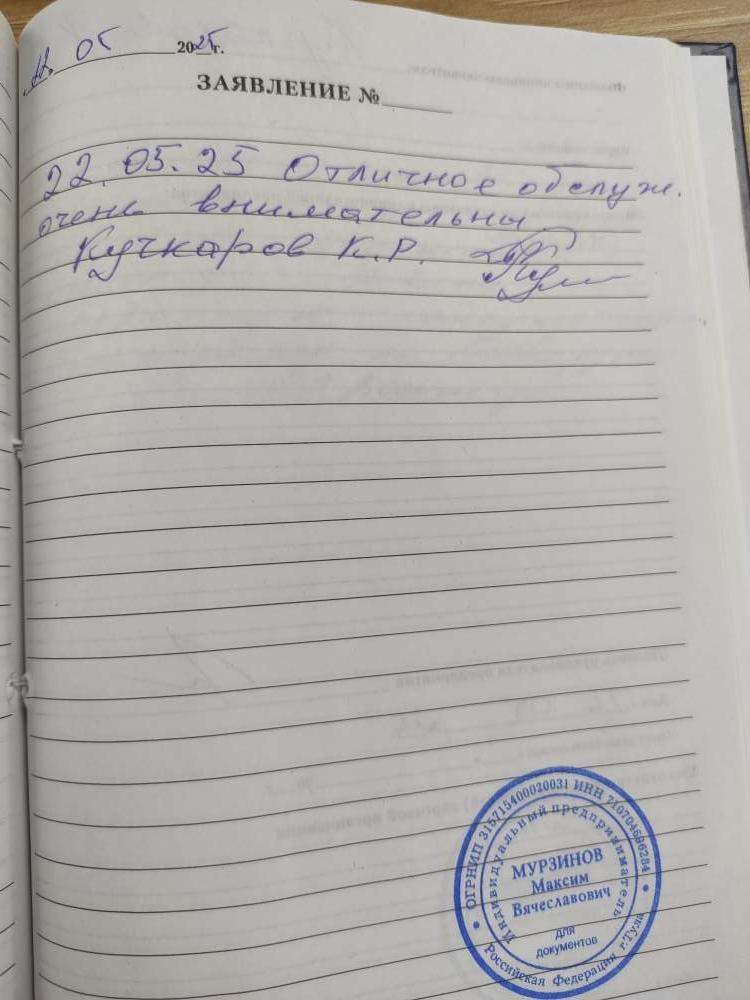 22 05 2025г.
ЗАЯВЛЕНИЕ №
22.05.25 Отличное обслуж.
очень внимательны
Кучкаров К.Р.
ОГРНИП 315715400020031 ИНН 710704696284
Индивидуальный предприниматель
МУРЗИНОВ
Максим
Вячеславович
для
документов
Российская Федерация г.Тула